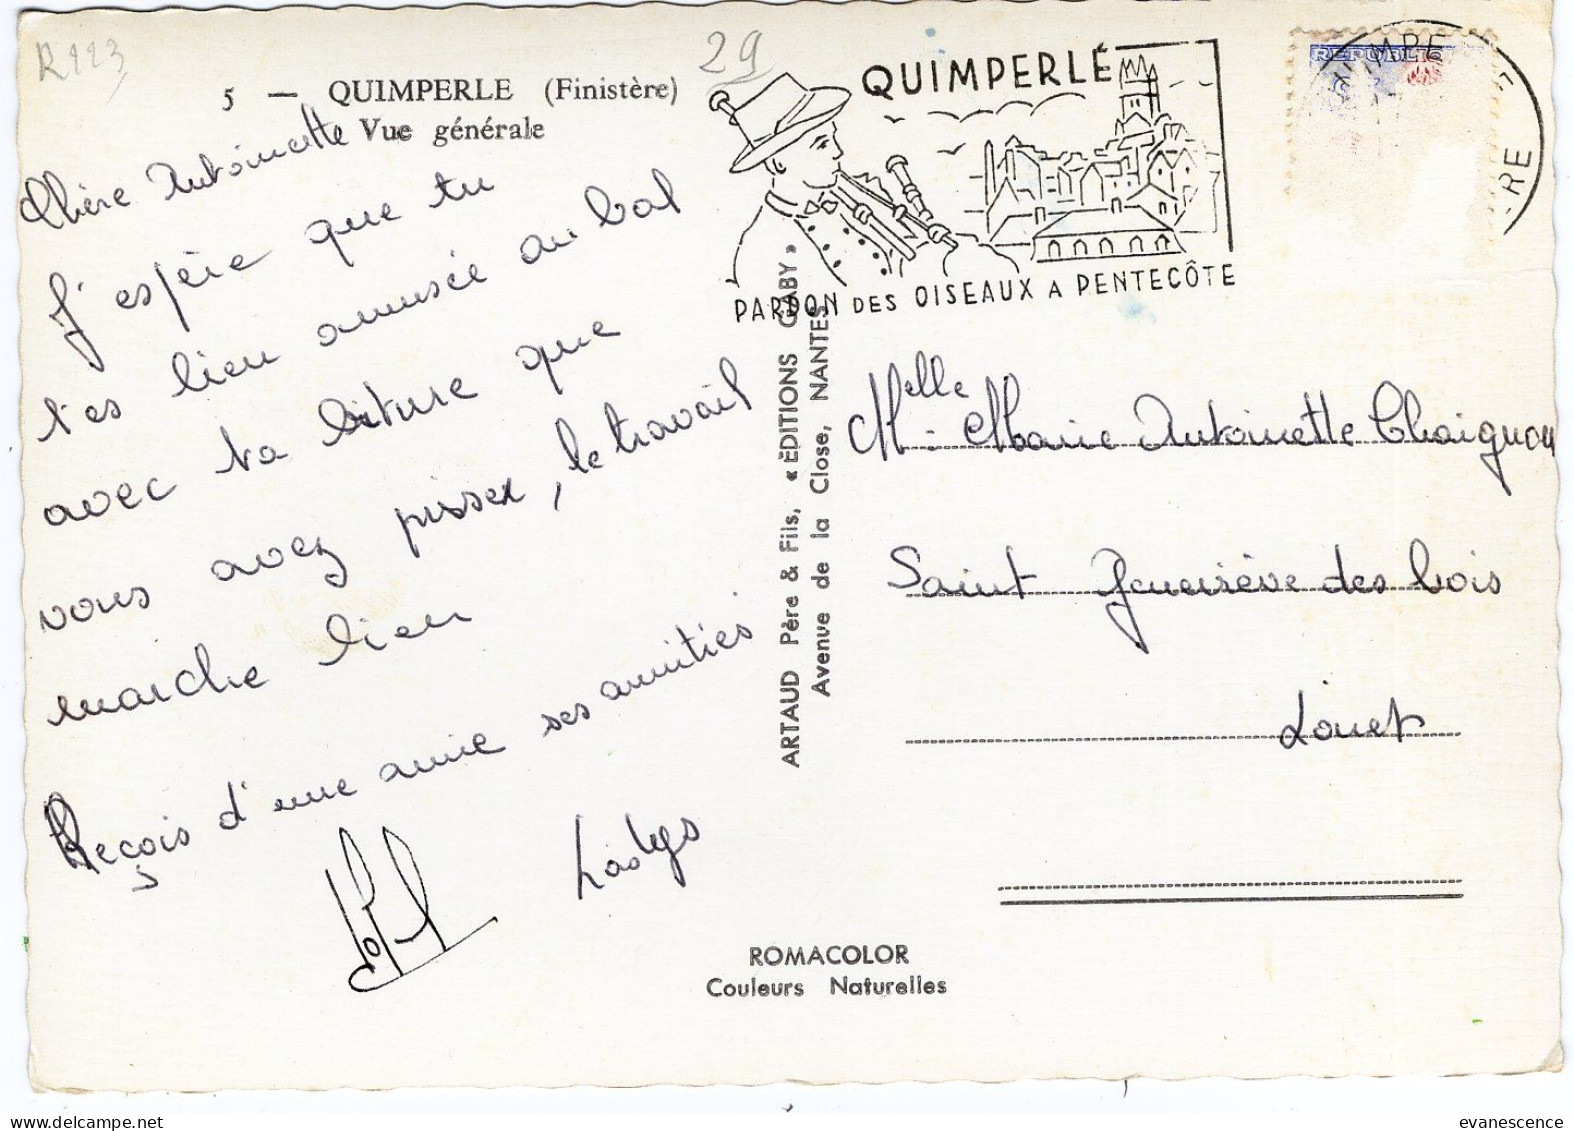 R113
29
5 — QUIMPERLE (Finistère)
Vue générale
Chère Antoinette
J'espère que tu
t'es bien amusée au bal
avec ta biture que
vous avez pissez, le travail
marche bien
Reçois d'une amie ses amitiés
QUIMPERLÉ
PARDON DES OISEAUX A PENTECÔTE
REPUBLIQ
ARTAUD Père & Fils, « ÉDITIONS GABY »
Avenue de la Close, NANTES
Melle Marie Antoinette Chaignon
Saint Geneviève des bois
Loiret
ROMACOLOR
Couleurs Naturelles
evanescence